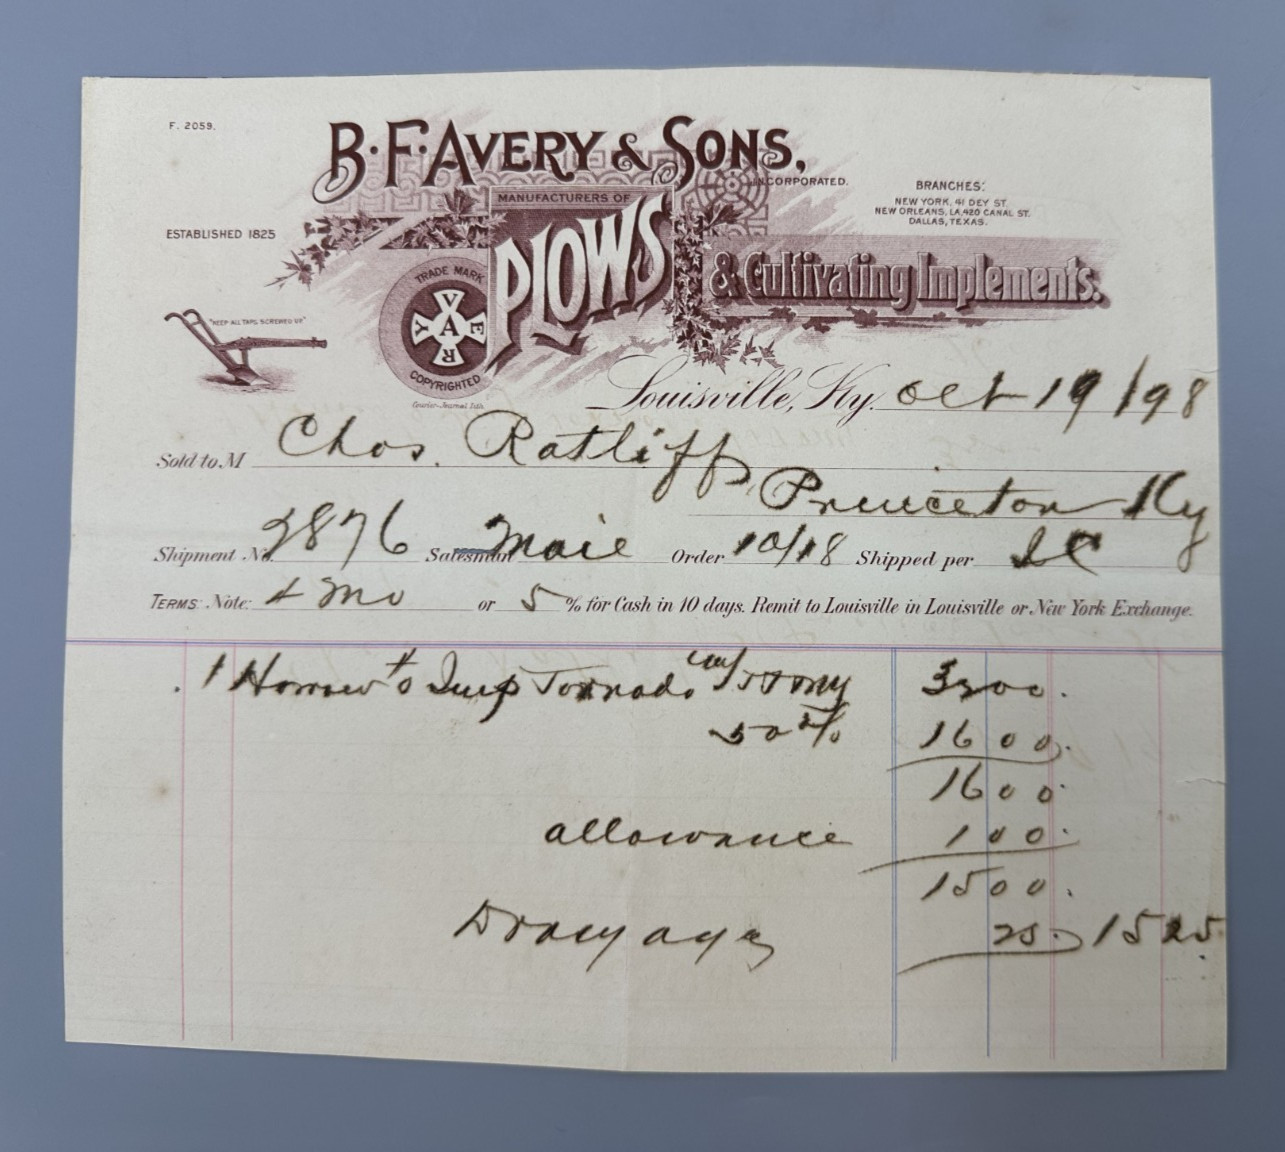 F. 2059.
B. F. AVERY & SONS,
INCORPORATED.
MANUFACTURERS OF
PLOWS
& Cultivating Implements.
BRANCHES:
NEW YORK, 41 DEY ST.
NEW ORLEANS, LA, 420 CANAL ST.
DALLAS, TEXAS.
ESTABLISHED 1825
"KEEP ALL TAPS SCREWED UP"
TRADE MARK
AVERY
COPYRIGHTED
Courier-Journal Lith.
Louisville, Ky. Oct 19/198
Sold to M Chas. Ratliff
Princeton Ky
Shipment No. 2876 Salesman Mail Order 10/18 Shipped per IC
TERMS: Note: 4 Mo or 5 % for Cash in 10 days. Remit to Louisville in Louisville or New York Exchange.
1 Harrow # 0 Imp Tornado 3200.
50 % 1600.
1600.
allowance 100.
1500.
Drayage 25. 1525.